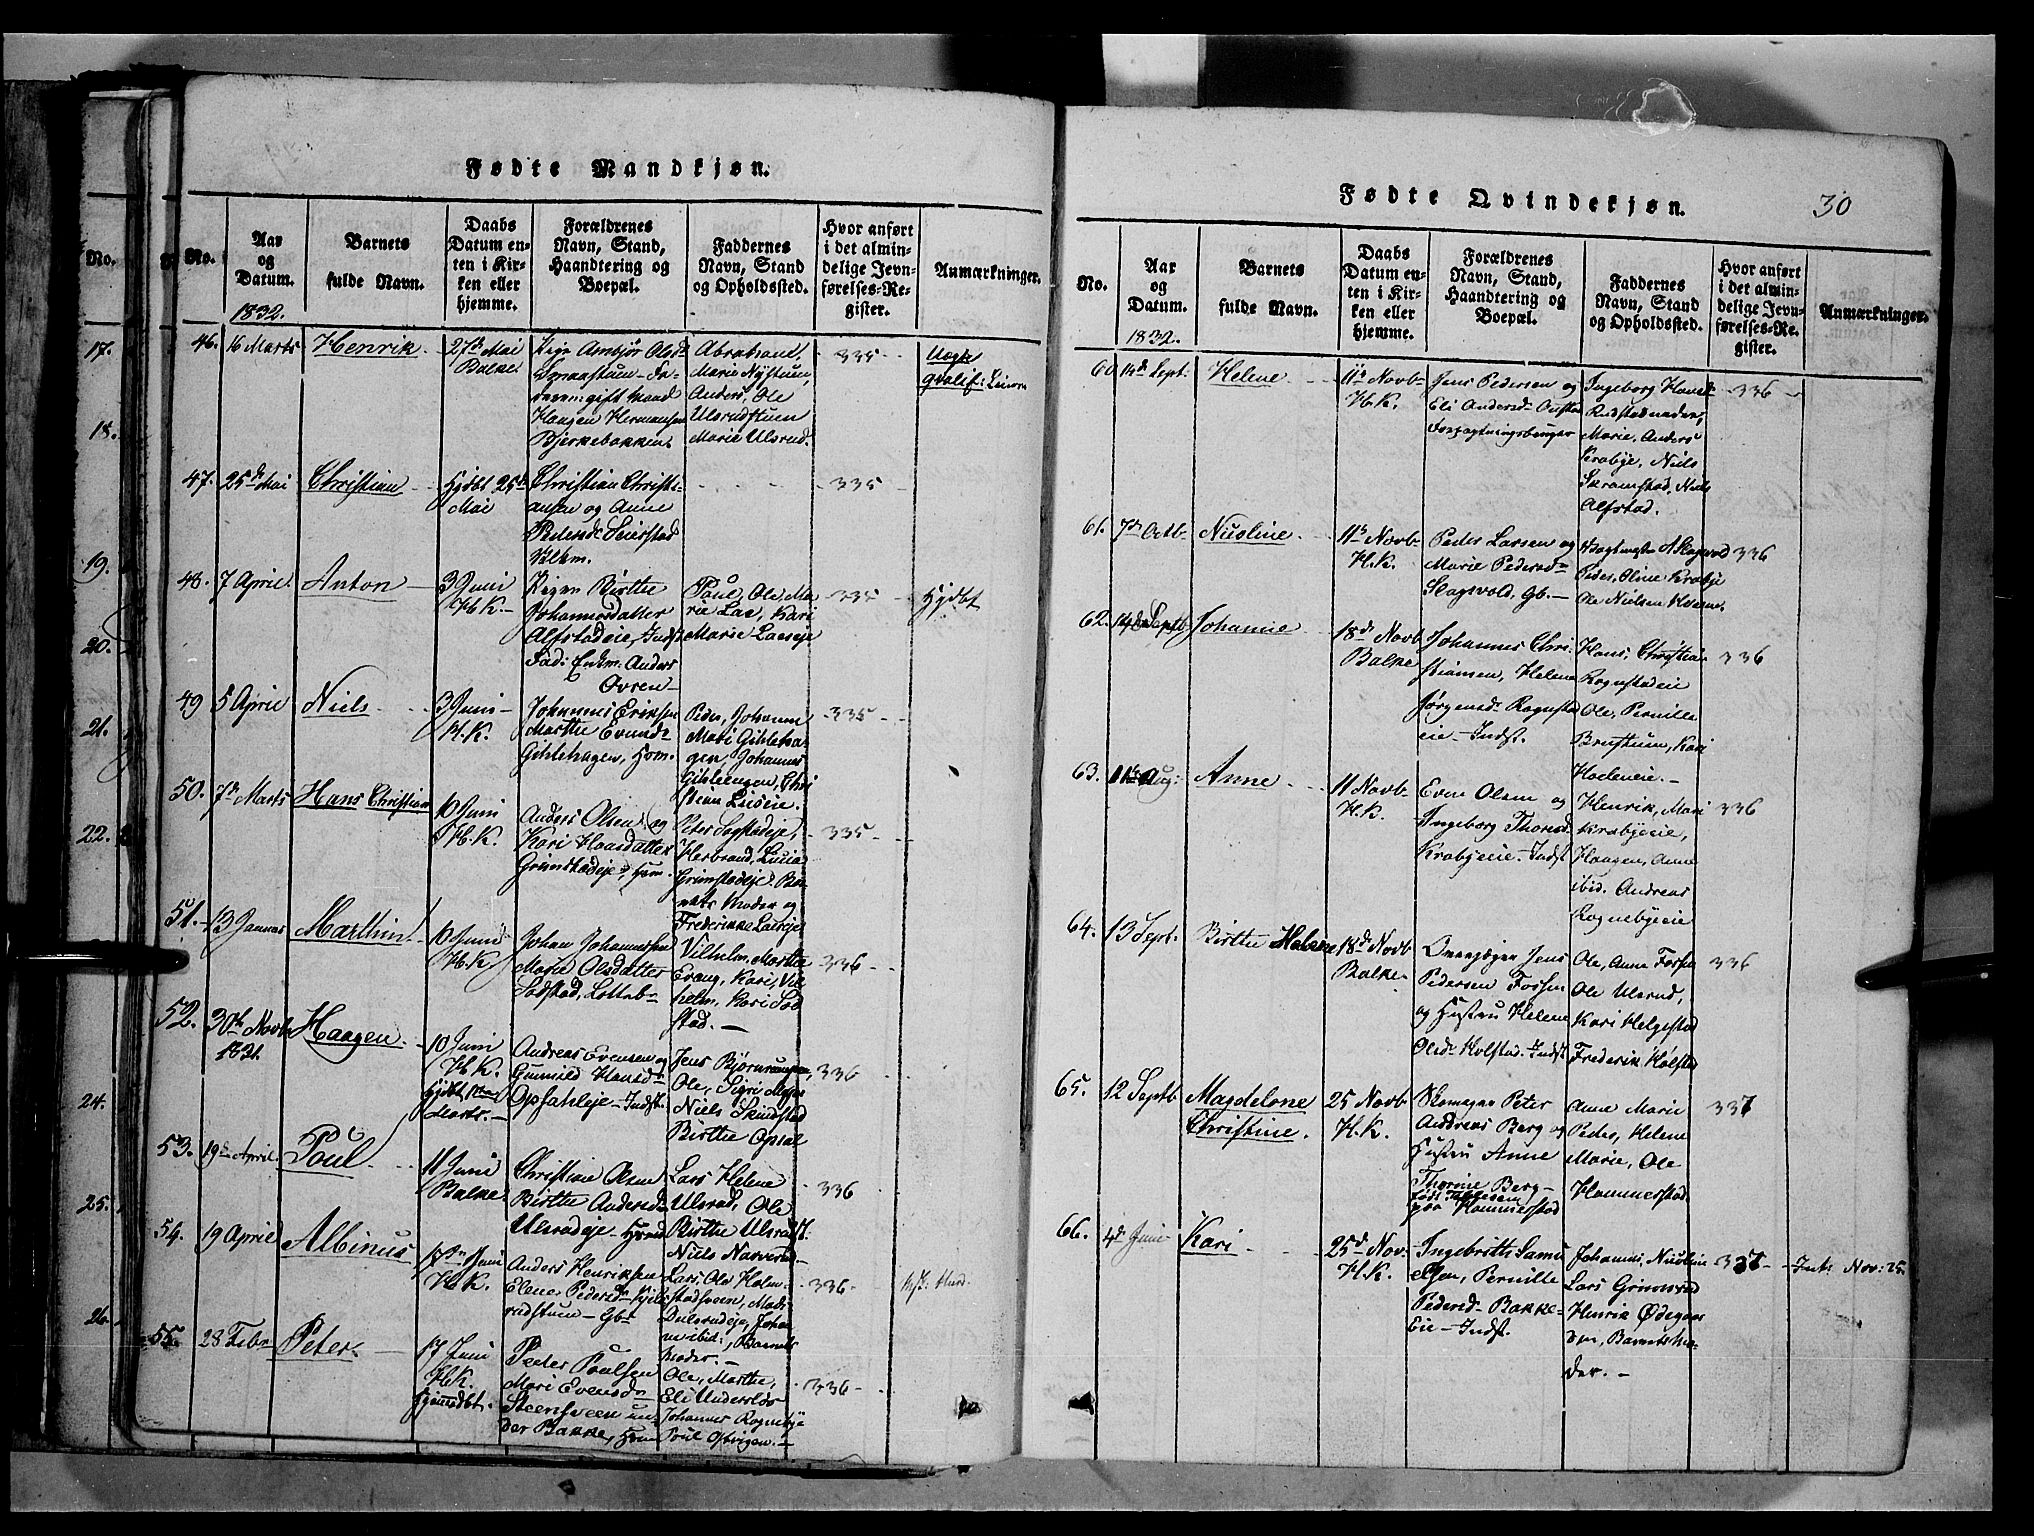 Fødte Mandkjøn.
No.
Aar og Datum.
1832.
Barnets fulde Navn.
Daabs Datum enten i Kirken eller hjemme.
Forældrenes Navn, Stand, Haandtering og Boepæl.
Faddernes Navn, Stand og Opholdssted.
Hvor anført i det almindelige Jevnførelses-Register.
Anmærkninger.
No.
17.
18.
19.
20.
21.
22.
24.
25.
26.
46. 16 Marts Henrik 27de Mai Balke
Pige Ambjør Olsd
Smaastuen
gift Mand
Haagen Hermansen
Bjerkebakken
Abraham,
Marie Nystuen,
Anders, Ole
Ulsrudstuen
Marie Ulsrud.
335
47. 25de Mai Christian Hjdbt 25de Mai
Christian Christi-
ansen og Anne
Pedersd Seierstad
335
48. 7 April Anton 3 Juni H.K.
Pigen Birthe
Johannesdatter
Alfstadeie, Indst
Fad: Enkm. Anders
Ovren
Poul, Ole Ma-
rie Lae, Kari
Marie Laeeje
335 Hjdbt
49 5 April Niels 3 Juni H.K.
Johannes Eriksen
Marthe Evensd
Gihlehagen, Hom.
Peder, Johanne
Mari Gihleha-
gen, Johannes
Gihleengen, Chri
stian Lundeie.
335
50. 7de Marts Hans Christian 10 Juni H.K.
Anders Olsen og
Kari Hansdatter
Grimstadeje, Hom.
Peter Sogstadeje,
Herbrand, Lucia
Grimstadeje. Bar-
nets Moder og
Frederikke Laeeje
335
51. 13 Januar Marthin 10 Juni H.K.
Johan Johannessen
Marie Olsdatter
Sodstad,
Vilhelm, Marthe
Evang, Kari, Vil
helm, Kari Sod
stad.
336
52. 30te Novbr 1831. Haagen 10 Juni H.K.
Hjdbt
Marts.
Andreas Evensen og
Gunnild Hansd
Opsahleje Indst.
Jens Bjørnerumpen,
Ole, Sigri
Niels Skindstad
Birthe Opsal
336
53. 19de April Poul 11 Juni Balke
Christian Olsen
Birthe Andersd
Ulsrudeje
Lars Helene
Ulsrud, Ole
Birthe Ulsrudst.
Niels Narverud
336
54. 19 April Albinus 17de Juni H.K.
Anders Henriksen
Elene Pedersd
rudstuen Gb
Lars, Ole Holm-
stadsveen, Mari
Dulsrudeje, Johan
ibid:, Barnets
Moder.
336
55. 28 Febr Peter 17 Juni H.K.
Hjemmedbt.
Peder Poulsen
Mari Evensd
Steensveen un-
der Bakke, Hom
Ole, Marthe,
Eli Undersrud
Johannes Rognebye
Poul Ostvigen.
336
Fødte Qvindekjøn.
30
No.
Aar og Datum.
1832.
Barnets fulde Navn.
Daabs Datum enten i Kirken eller hjemme.
Forældrenes Navn, Stand, Haandtering og Boepæl.
Faddernes Navn, Stand og Opholdssted.
Hvor anført i det almindelige Jevnførelses-Register.
Anmærkninger.
60 14de Sept. Helene 11te Novb H.K.
Jens Pedersen og
Eli Andersd
Forpagtningsbruger
Ingeborg Hansd
Rudstadnedre,
Marie, Anders
Krabye, Niels
Skramstad, Niels
Alfstad.
336
61. 7de Octb. Nicoline 11te Novb H.K.
Peder Larsen og
Marie Pedersd
Slagsvold, Gb.
Vagtmester A Slagsvold
Peder, Oline Krabye
Ole Nielsen Hveem
336
62. 14de Septb Johanne 18de Novb Balke
Johannes Chri-
stiansen, Helene
Jørgensd Rognstad
eie Indst.
Hans, Christian
Rognstadeie
Ole, Pernille
Brustuen, Kari
Hoeleneie.
336
63. 11te Aug: Anne 11 Novb H.K.
Even Olsen og
Ingeborg Thorsd
Krabyeeie Indst
Henrik, Mari
Krabyeeie,
Haagen, Anne
ibid. Andreas
Rognebyeeie
336
64. 13 Sept. Birthe Helene 18de Novb Balke
Jens
Pedersen Fossen
og Hustru Helene
Olsd Holstad Indst
Ole, Anne Fossen
Ole Ulsrud,
Kari Helgestad
Frederik Holstad
336
65. 12 Septb Magdelone Christine. 25 Novb H.K.
Skomager Peter
Andreas Berg og
Hustru Anne
Thorine Berg
paa Hammerstad
Anne Marie
Peder, Helene
Marie, Ole
Hammerstad.
337
66. 4de Juni Kari 25de Nov. H.K.
Ingebrith Samu
elsen, Pernille
Pedersd Bakke-
Eie Indst.
Johannes, Nicoline
Lars Grimsrud
Henrik Ødegaar
den, Barnets Mo-
der.
337 Int: Nov: 25.